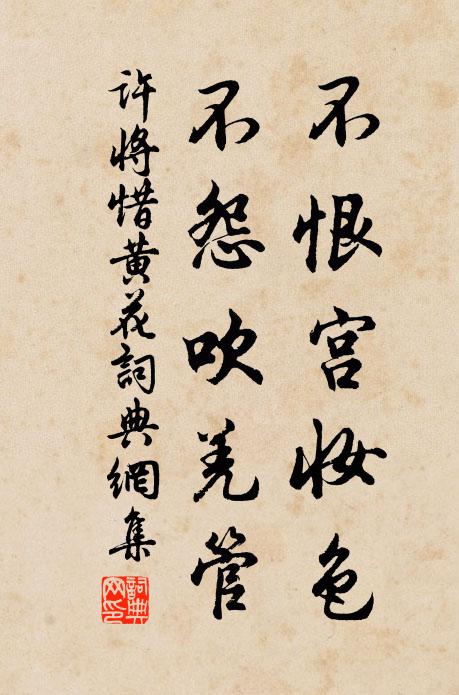 不恨宫妆色
不怨吹羌管
许将惜黄花詞典網集
詞典网印